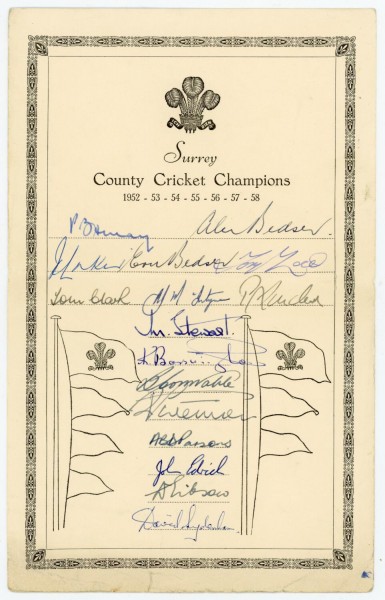 Surrey
County Cricket Champions
1952 - 53 - 54 - 55 - 56 - 57 - 58
P B H May Alec Bedser.
J Laker Eric Bedser Tony Lock
Tom Clark
M. Stewart.
K. Barrington
D Constable
ABD Parsons
John Edrich
D Gibson
David Sydenham